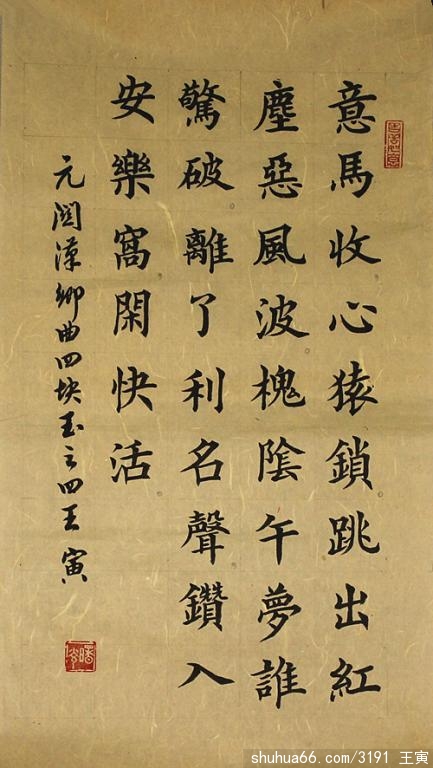 意馬收心猿鎖跳出紅
塵惡風波槐陰午夢誰
驚破離了利名聲鑽入
安樂窩閑快活
元関漢卿曲四块玉之四王寅
shuhua66.com/3191 王寅